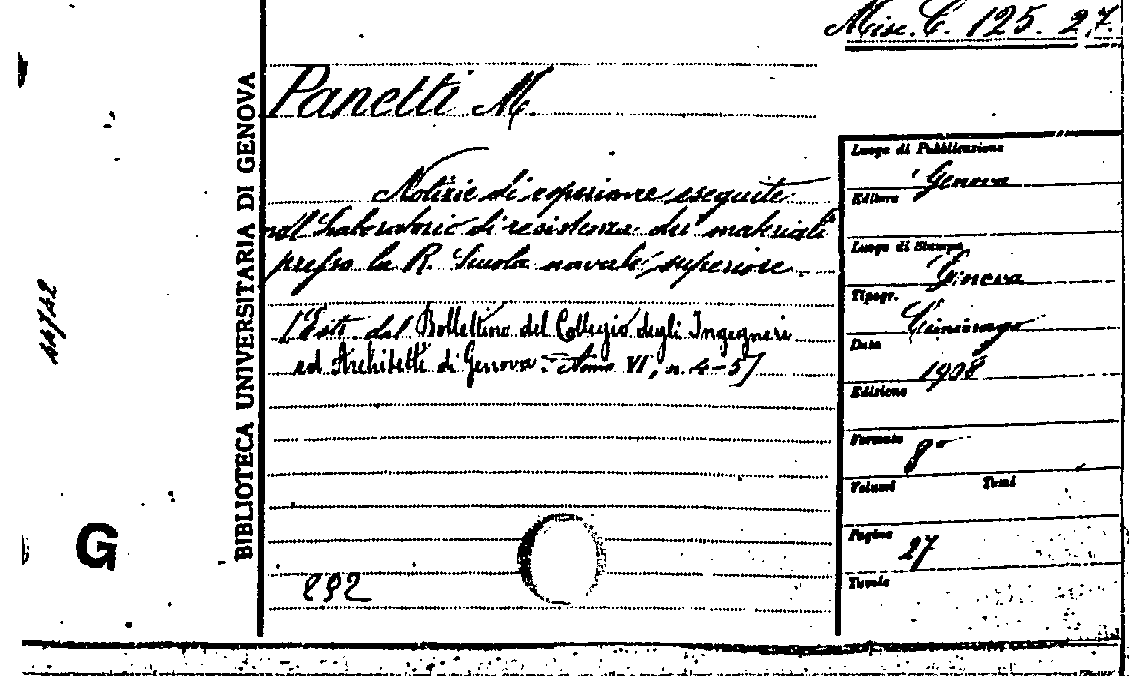 Misc. C. 125. 27.
Panetti M.
Notizie di esperienze eseguite
nel Laboratorio di resistenza dei materiali
presso la R. Scuola navale superiore.
[Estr. dal Bollettino del Collegio degli Ingegneri
ed Architetti di Genova. Anno VI, n. 4-5]
292
BIBLIOTECA UNIVERSITARIA DI GENOVA
G
Luogo di Pubblicazione
Genova
Editore
Luogo di Stampa
Genova
Tipogr.
Ciminago
Data
1908
Edizione
Formato
8°
Volumi Tomi
Pagine
27
Tavole